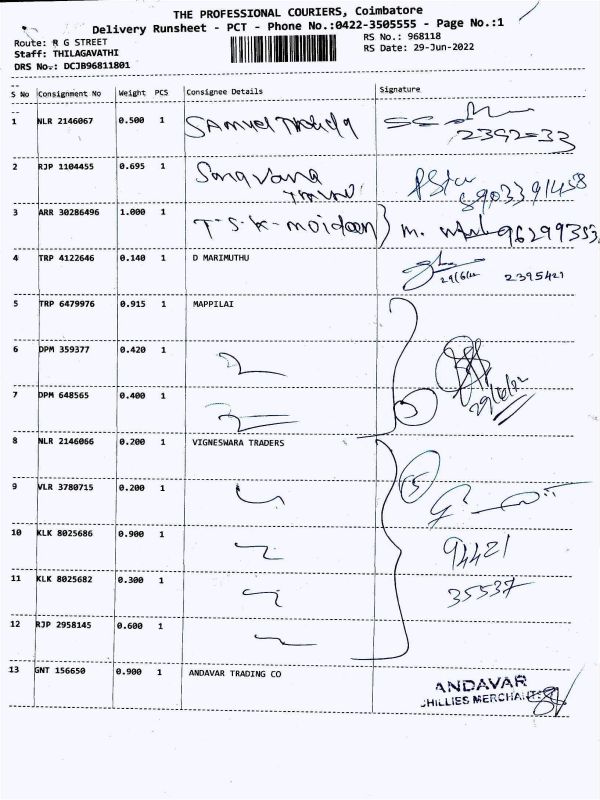 THE PROFESSIONAL COURIERS, Coimbatore
Delivery Runsheet - PCT - Phone No.:0422-3505555 - Page No.:1
Route: R G STREET
RS No.: 968118
Staff: THILAGAVATHI
RS Date: 29-Jun-2022
DRS No.: DCJB96811801
S No Consignment No Weight PCS Consignee Details Signature
1 NLR 2146067 0.500 1 SAMuel
2392=33
2 RJP 1104455 0.695 1 Saravana
8903391458
3 ARR 30286496 1.000 1 T-S-K-moideen} M. 96299353
4 TRP 4122646 0.140 1 D MARIMUTHU
29/6/22 2395421
5 TRP 6479976 0.915 1 MAPPILAI
6 DPM 359377 0.420 1
7 DPM 648565 0.400 1 3 29/6/22
8 NLR 2146066 0.200 1 VIGNESWARA TRADERS
9 VLR 3780715 0.200 1 5
10 KLK 8025686 0.900 1 94421
11 KLK 8025682 0.300 1 35537
12 RJP 2958145 0.600 1
13 GNT 156650 0.900 1 ANDAVAR TRADING CO
ANDAVAR
CHILLIES MERCHANTS